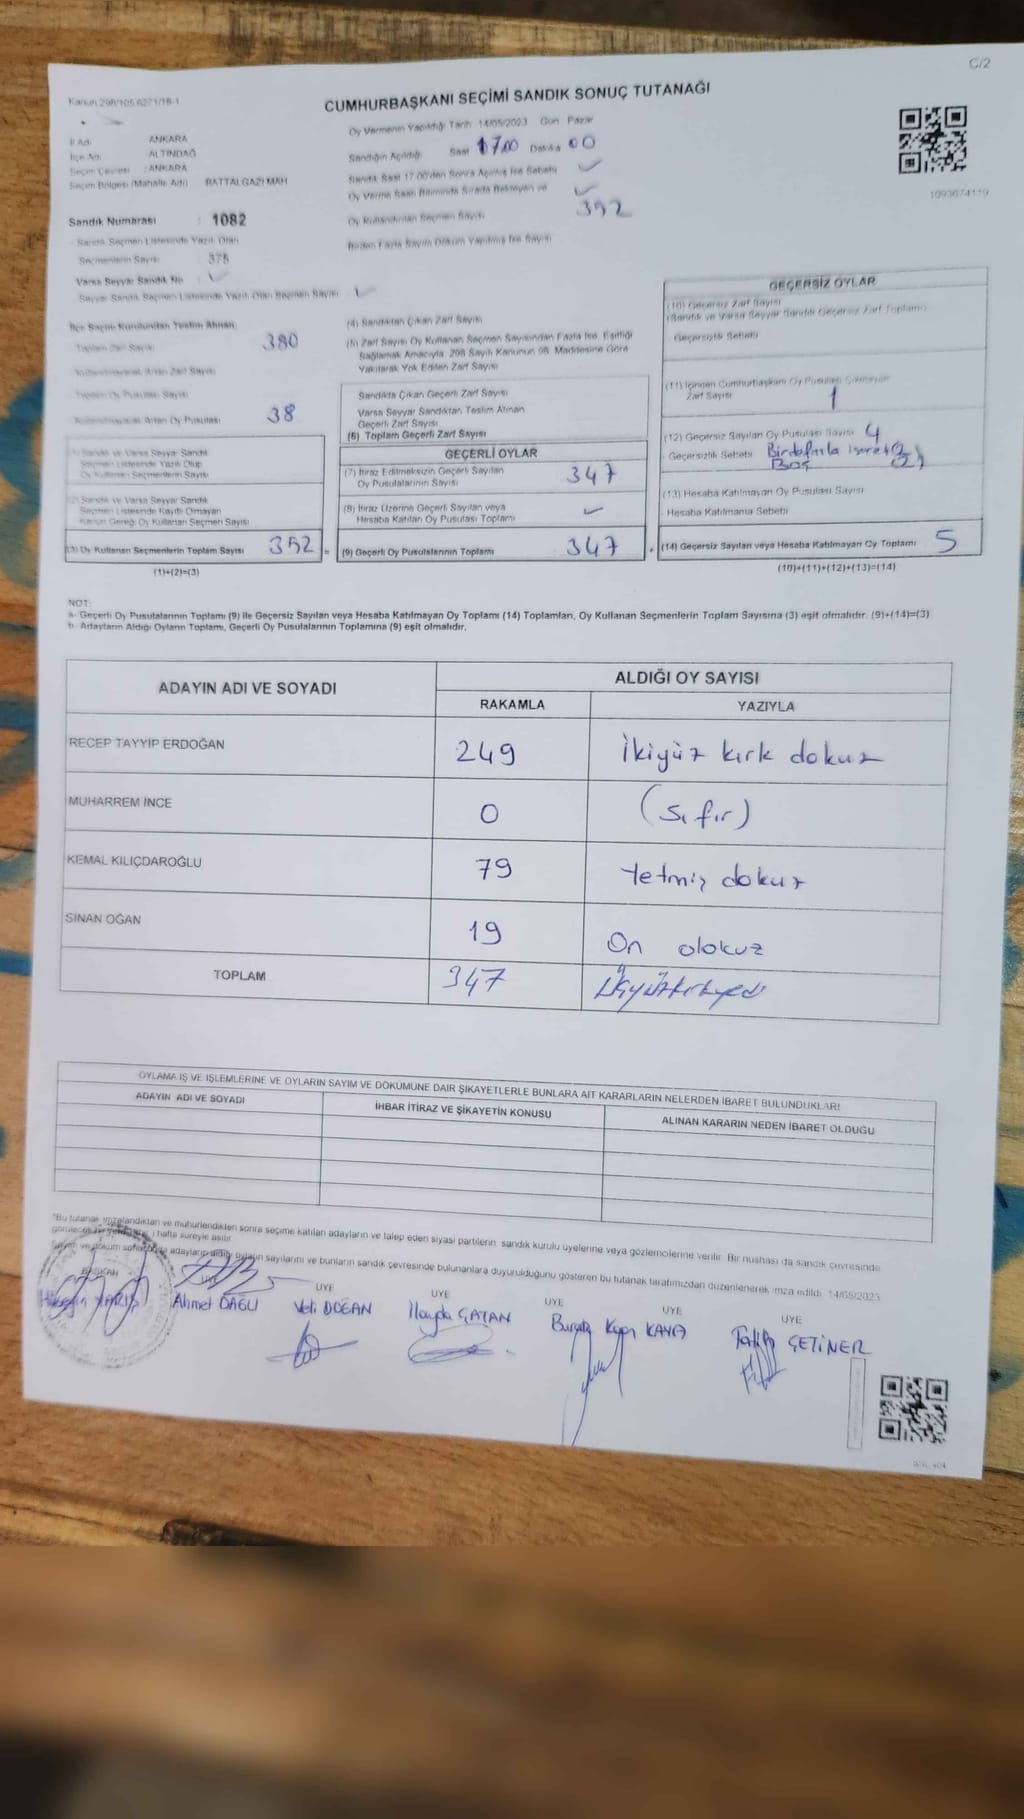 C/2
Kanun 298/105,6271/18-1
CUMHURBAŞKANI SEÇİMİ SANDIK SONUÇ TUTANAĞI
İl Adı : ANKARA
İlçe Adı : ALTINDAĞ
Seçim Çevresi : ANKARA
Seçim Bölgesi (Mahalle Adı) : BATTALGAZİ MAH
Oy Vermenin Yapıldığı Tarih 14/05/2023 Gün Pazar
Sandığın Açıldığı Saat 17.00 Dakika 00
Sandık Saat 17.00'den Sonra Açılmış İse Sebebi
Oy Verme Saati Bitiminde Sırada Bekleyen ve
Oy Kullandırılan Seçmen Sayısı 352
Birden Fazla Sayım Döküm Yapılmış İse Sayısı
1093674119
Sandık Numarası : 1082
Sandık Seçmen Listesinde Yazılı Olan
Seçmenlerin Sayısı : 375
Varsa Seyyar Sandık No :
Seyyar Sandık Seçmen Listesinde Yazılı Olan Seçmen Sayısı
İlçe Seçim Kurulundan Teslim Alınan
Toplam Zarf Sayısı 380
Kullanılmayarak Artan Zarf Sayısı
Toplam Oy Pusulası Sayısı
Kullanılmayarak Artan Oy Pusulası 38
(1) Sandık ve Varsa Seyyar Sandık
Seçmen Listesinde Yazılı Olup
Oy Kullanan Seçmenlerin Sayısı
(2) Sandık ve Varsa Seyyar Sandık
Seçmen Listesinde Kayıtlı Olmayan
Kanun Gereği Oy Kullanan Seçmen Sayısı
(3) Oy Kullanan Seçmenlerin Toplam Sayısı 352
(1)+(2)=(3)
(4) Sandıktan Çıkan Zarf Sayısı
(5) Zarf Sayısı Oy Kullanan Seçmen Sayısından Fazla İse, Eşitliği
Sağlamak Amacıyla, 298 Sayılı Kanunun 98. Maddesine Göre
Yakılarak Yok Edilen Zarf Sayısı
Sandıkta Çıkan Geçerli Zarf Sayısı
Varsa Seyyar Sandıktan Teslim Alınan
Geçerli Zarf Sayısı
(6) Toplam Geçerli Zarf Sayısı
GEÇERLİ OYLAR
(7) İtiraz Edilmeksizin Geçerli Sayılan
Oy Pusulalarının Sayısı 347
(8) İtiraz Üzerine Geçerli Sayılan veya
Hesaba Katılan Oy Pusulası Toplamı
= (9) Geçerli Oy Pusulalarının Toplamı 347
GEÇERSİZ OYLAR
(10) Geçersiz Zarf Sayısı
(Sandık ve Varsa Seyyar Sandık Geçersiz Zarf Toplamı)
Geçersizlik Sebebi
(11) İçinden Cumhurbaşkanı Oy Pusulası Çıkmayan
Zarf Sayısı 1
(12) Geçersiz Sayılan Oy Pusulası Sayısı 4
Geçersizlik Sebebi Birdafazla işaret
Boş
(13) Hesaba Katılmayan Oy Pusulası Sayısı
Hesaba Katılmama Sebebi
+ (14) Geçersiz Sayılan veya Hesaba Katılmayan Oy Toplamı 5
(10)+(11)+(12)+(13)=(14)
NOT:
a- Geçerli Oy Pusulalarının Toplamı (9) ile Geçersiz Sayılan veya Hesaba Katılmayan Oy Toplamı (14) Toplamları, Oy Kullanan Seçmenlerin Toplam Sayısına (3) eşit olmalıdır. (9)+(14)=(3)
b- Adayların Aldığı Oyların Toplamı, Geçerli Oy Pusulalarının Toplamına (9) eşit olmalıdır.
ADAYIN ADI VE SOYADI
ALDIĞI OY SAYISI
RAKAMLA YAZIYLA
RECEP TAYYİP ERDOĞAN 249 İkiyüz kırk dokuz
MUHARREM İNCE 0 (Sıfır)
KEMAL KILIÇDAROĞLU 79 Yetmiş dokuz
SİNAN OĞAN 19 On dokuz
TOPLAM 347 Üçyüzkırkyedi
OYLAMA İŞ VE İŞLEMLERİNE VE OYLARIN SAYIM VE DÖKÜMÜNE DAİR ŞİKAYETLERLE BUNLARA AİT KARARLARIN NELERDEN İBARET BULUNDUKLARI
ADAYIN ADI VE SOYADI İHBAR İTİRAZ VE ŞİKAYETİN KONUSU ALINAN KARARIN NEDEN İBARET OLDUĞU
"Bu tutanak imzalandıktan ve mühürlendikten sonra seçime katılan adayların ve talep eden siyasi partilerin sandık kurulu üyelerine veya gözlemcilerine verilir. Bir nüshası da sandık çevresinde
hafta süreyle asılır.
adayların aldığı oyların sayılarını ve bunların sandık çevresinde bulunanlara duyurulduğunu gösteren bu tutanak tarafımızdan düzenlenerek imza edildi. 14/05/2023
BAŞKAN ÜYE ÜYE ÜYE ÜYE ÜYE
Ahmet DAĞLI Veli DOĞAN İlayda ÇATAN KAYA ÇETİNER